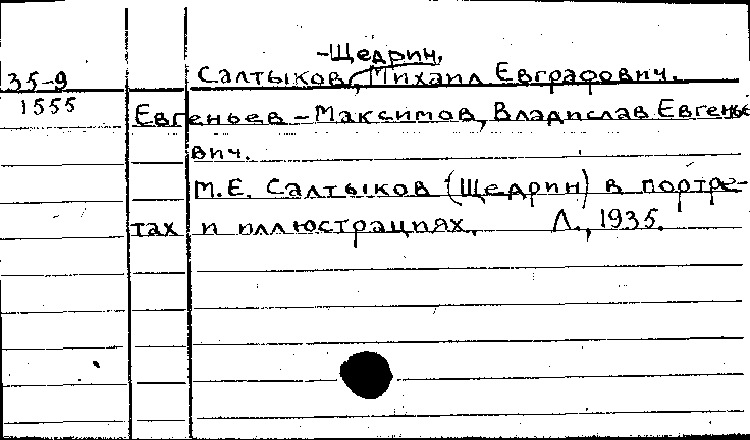 -Щедрин,
35-9 Салтыков, Михаил Евграфович.
1555 Евгеньев-Максимов, Владислав Евгенье
вич.
М.Е. Салтыков (Щедрин) в портре-
тах и иллюстрациях. Л., 1935.